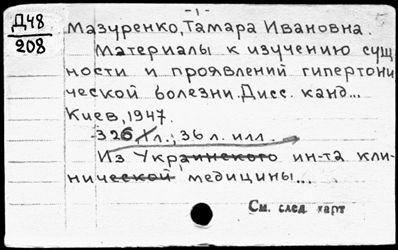 -1-
Д48
208
Мазуренко, Тамара Ивановна.
Материалы к изучению сущ
ности и проявлений гипертони
ческой болезни. Дисс. канд...
Киев, 1947.
326 л.; 36 л. илл.
Из Украинского ин-та кли-
нической медицины...
См. след карт